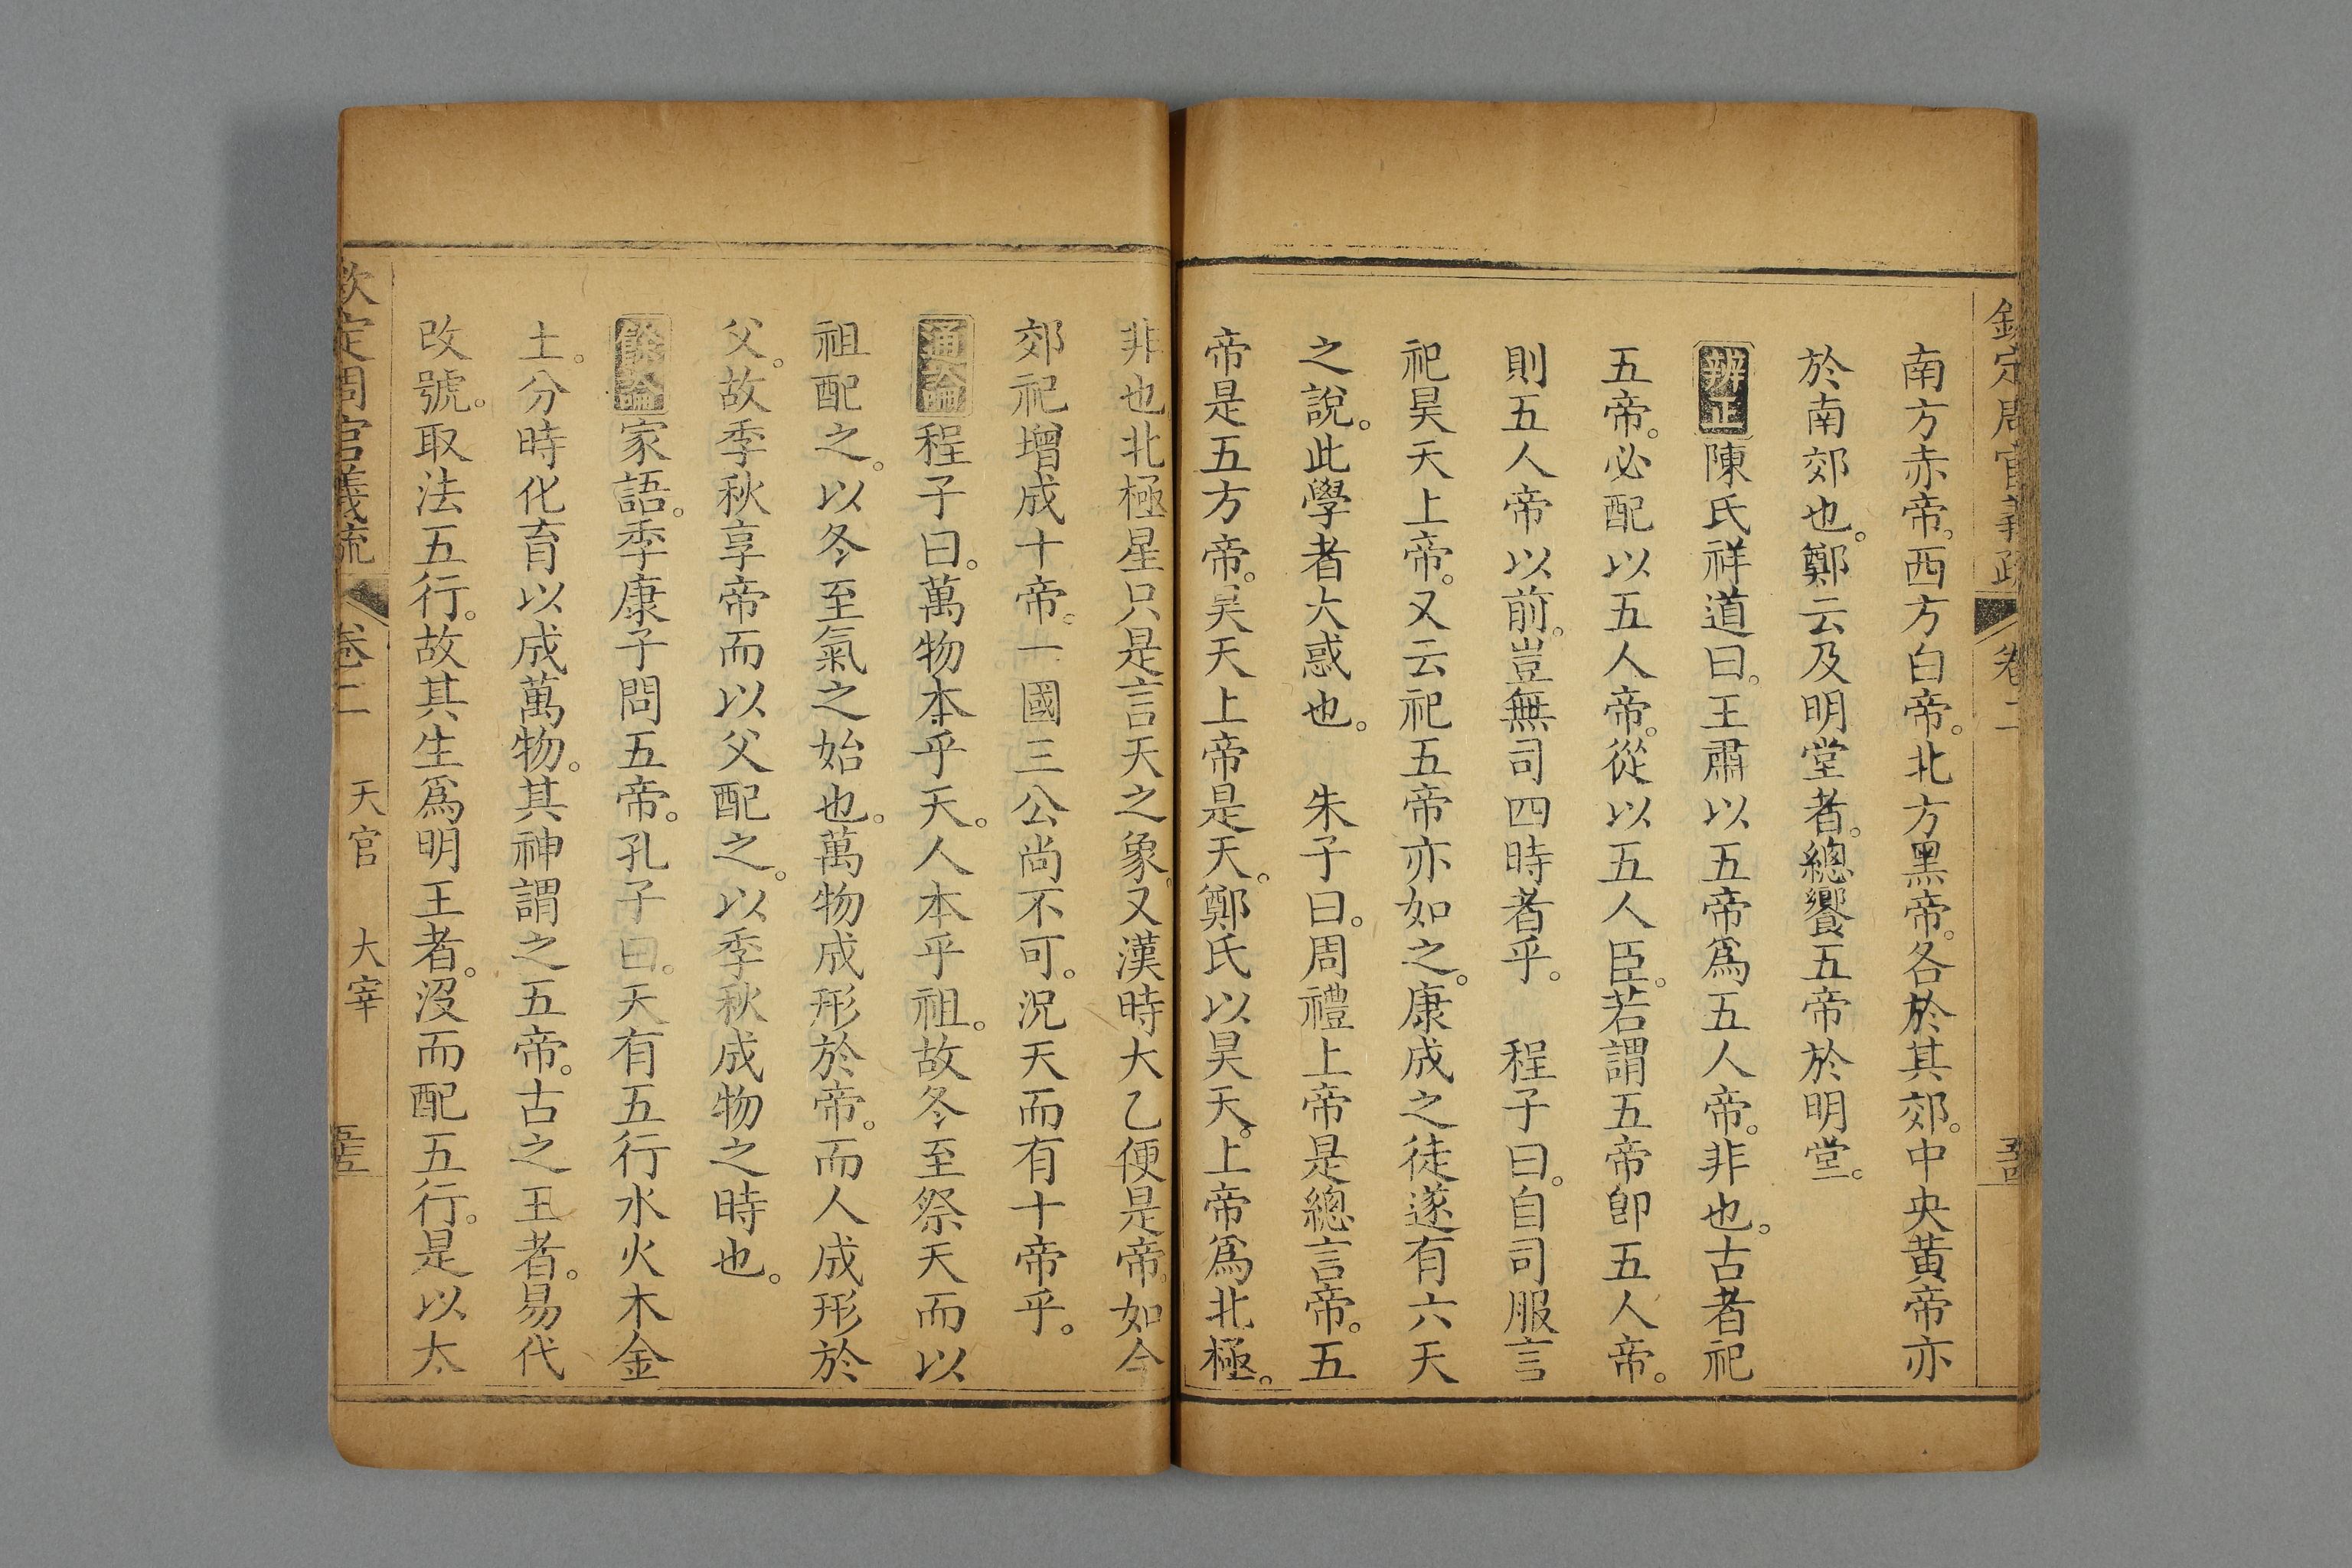 欽定周官義疏 卷二
南方赤帝。西方白帝。北方黑帝。各於其郊。中央黃帝亦
於南郊也。鄭云及明堂者。總饗五帝於明堂。
辨正陳氏祥道曰。王肅以五帝爲五人帝。非也。古者祀
五帝。必配以五人帝。從以五人臣。若謂五帝卽五人帝。
則五人帝以前。豈無司四時者乎。 程子曰。自司服言
祀昊天上帝。又云祀五帝亦如之。康成之徒遂有六天
之說。此學者大惑也。 朱子曰。周禮上帝是總言帝。五
帝是五方帝。昊天上帝是天。鄭氏以昊天。上帝爲北極。
非也北極星只是言天之象。又漢時大乙便是帝。如今
郊祀增成十帝。一國三公尚不可。況天而有十帝乎。
通論程子曰。萬物本乎天。人本乎祖。故冬至祭天而以
祖配之。以冬至氣之始也。萬物成形於帝。而人成形於
父。故季秋享帝而以父配之。以季秋成物之時也。
餘論家語。季康子問五帝。孔子曰。天有五行水火木金
土。分時化育以成萬物。其神謂之五帝。古之王者。易代
改號。取法五行。故其生爲明王者。沒而配五行。是以太
欽定周官義疏 卷二 天官 大宰